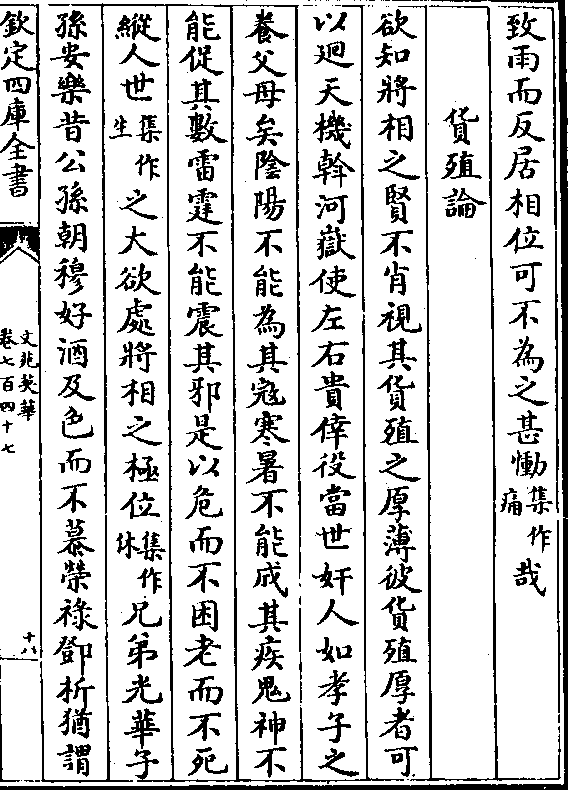 致雨而反居相位可不為之甚慟集作痛哉
貨殖論
欲知將相之賢不肖視其貨殖之厚薄彼貨殖厚者可
以迴天機斡河嶽使左右貴倖役當世奸人如孝子之
養父母矣陰陽不能為其寇寒暑不能成其疾鬼神不
能促其數雷霆不能震其邪是以危而不困老而不死
縱人世集作生之大欲處將相之極位集作休兄弟光華子
孫安樂昔公孫朝穆好酒及色而不慕榮祿鄧析猶謂
欽定四庫全書
文苑英華
卷七百四十七
十八